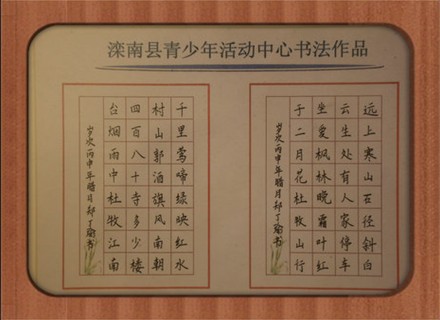 滦南县青少年活动中心书法作品
远上寒山石径斜白
云生处有人家停车
坐爱枫林晚霜叶红
于二月花杜牧山行
岁次丙申年腊月郑书
千里莺啼绿映红水
村山郭酒旗风南朝
四百八十寺多少楼
台烟雨中杜牧江南
岁次丙申年腊月郑书